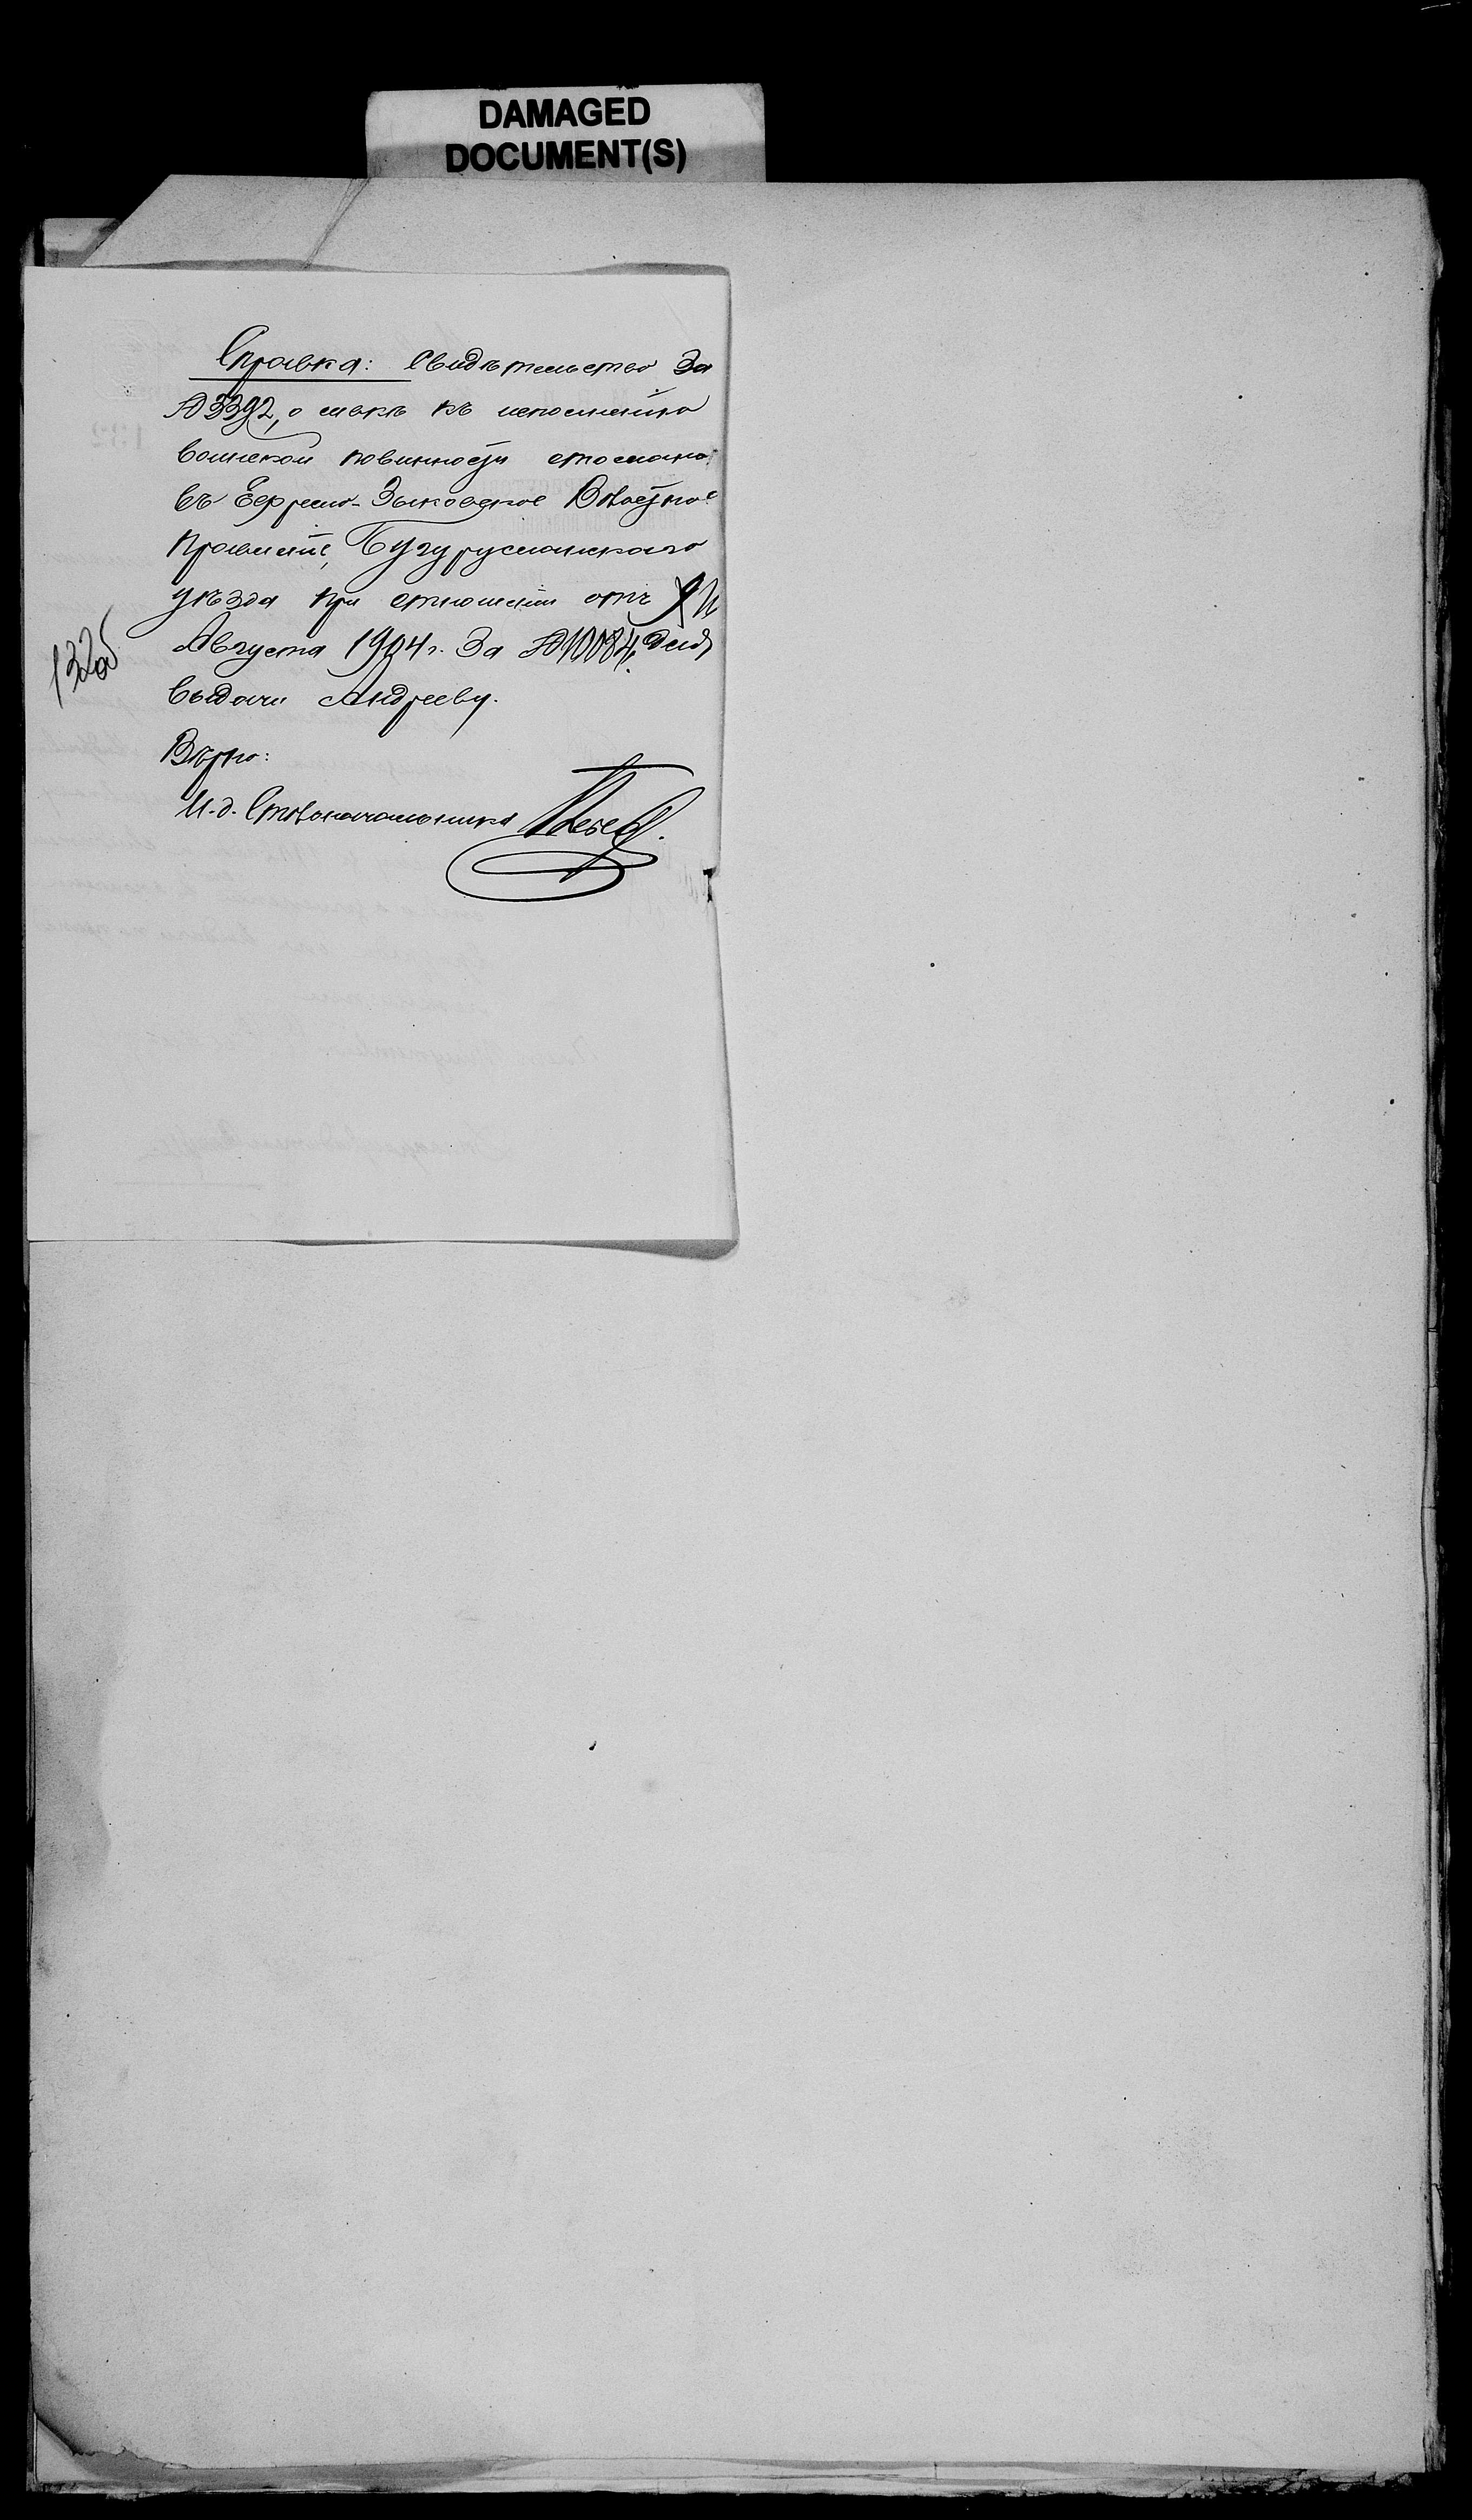 DAMAGED
DOCUMENT(S)
Справка: Свидѣтельство за
№ 3392, о явкѣ къ исполненію
воинской повинности отослано
въ Ефремо-Зыковское Волостное
Правленіе, Бугурусланскаго
уѣзда при отношеніи отъ
Августа 1904 г. за № 10084, для
выдачи Андрееву.
Вѣрно:
И. д. Столоначальника
132об